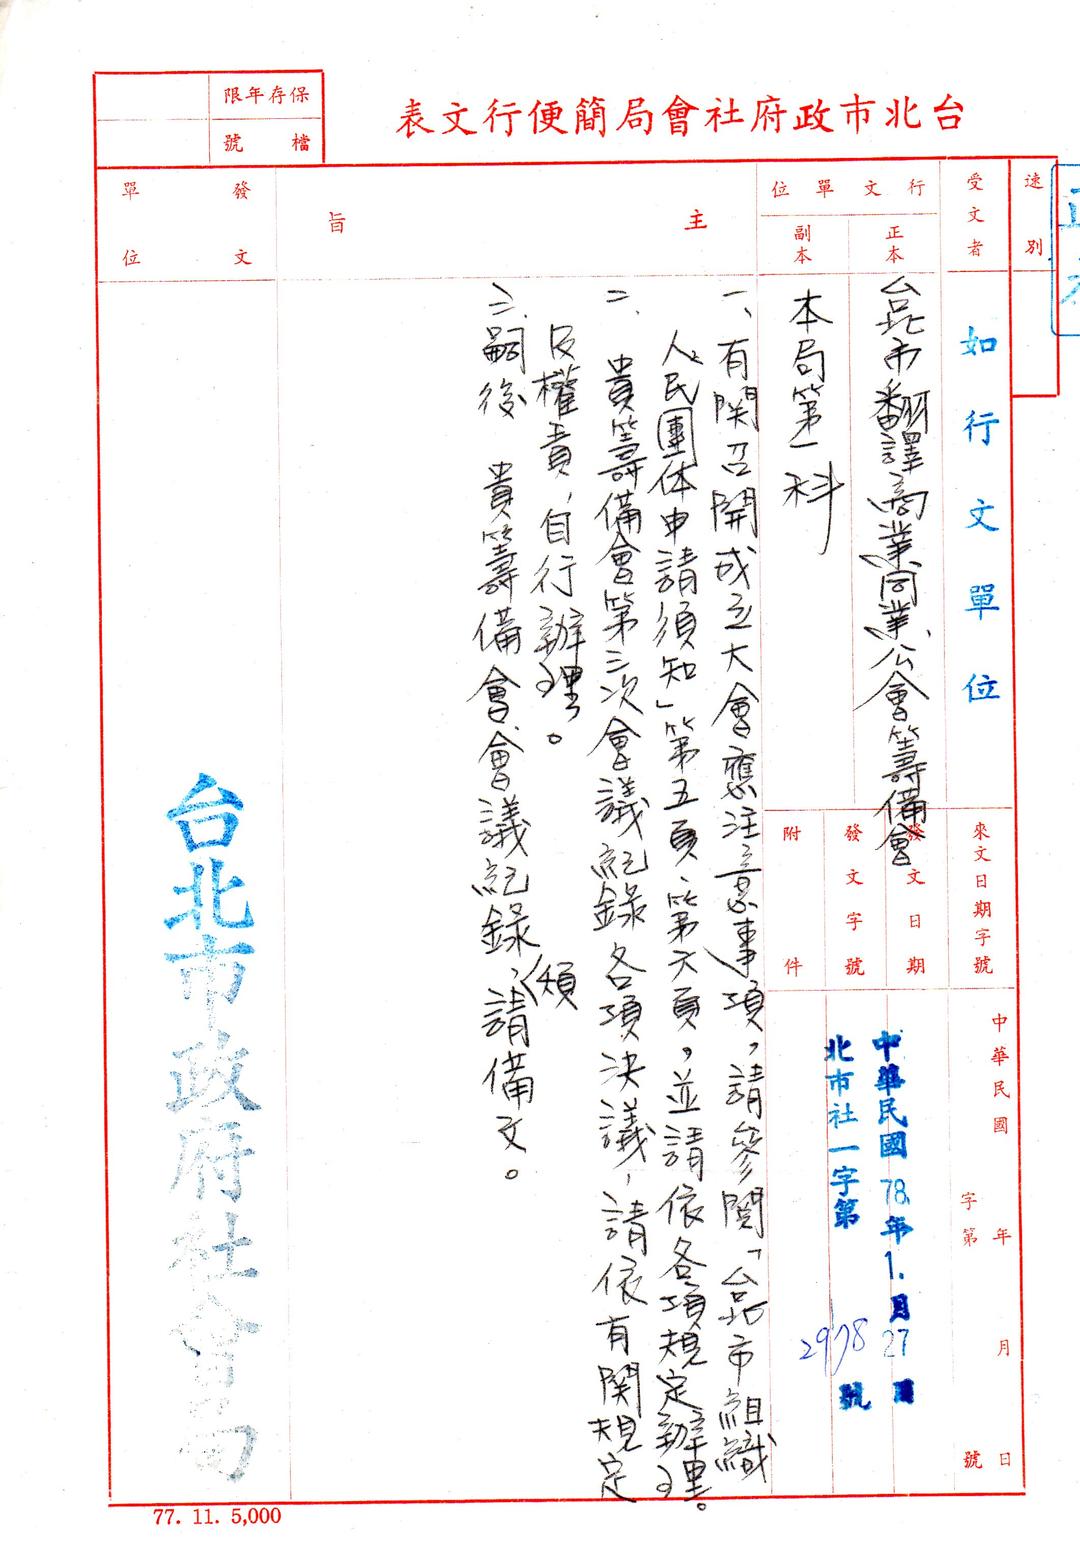 台北市政府社會局簡便行文表
保存年限
檔號
速別
正本
受文者
如行文單位
行文單位
正本
台北市翻譯商業同業公會籌備會
副本
本局第一科
來文日期字號
中華民國 年 月 日
字第 號
發文日期
中華民國78年1.月27日
發文字號
北市社一字第2978號
附件
主旨
一、有関召開成立大會應注意事項,請參閱「台北市組織
人民團体申請須知」第五頁、第六頁,並請依各項規定辦理。
二、貴籌備會第三次會議紀錄各項決議,請依有関規定
及權責,自行辦理。
三、嗣後 貴籌備會會議紀錄,請備文。
須
發文單位
台北市政府社會局
77. 11. 5,000